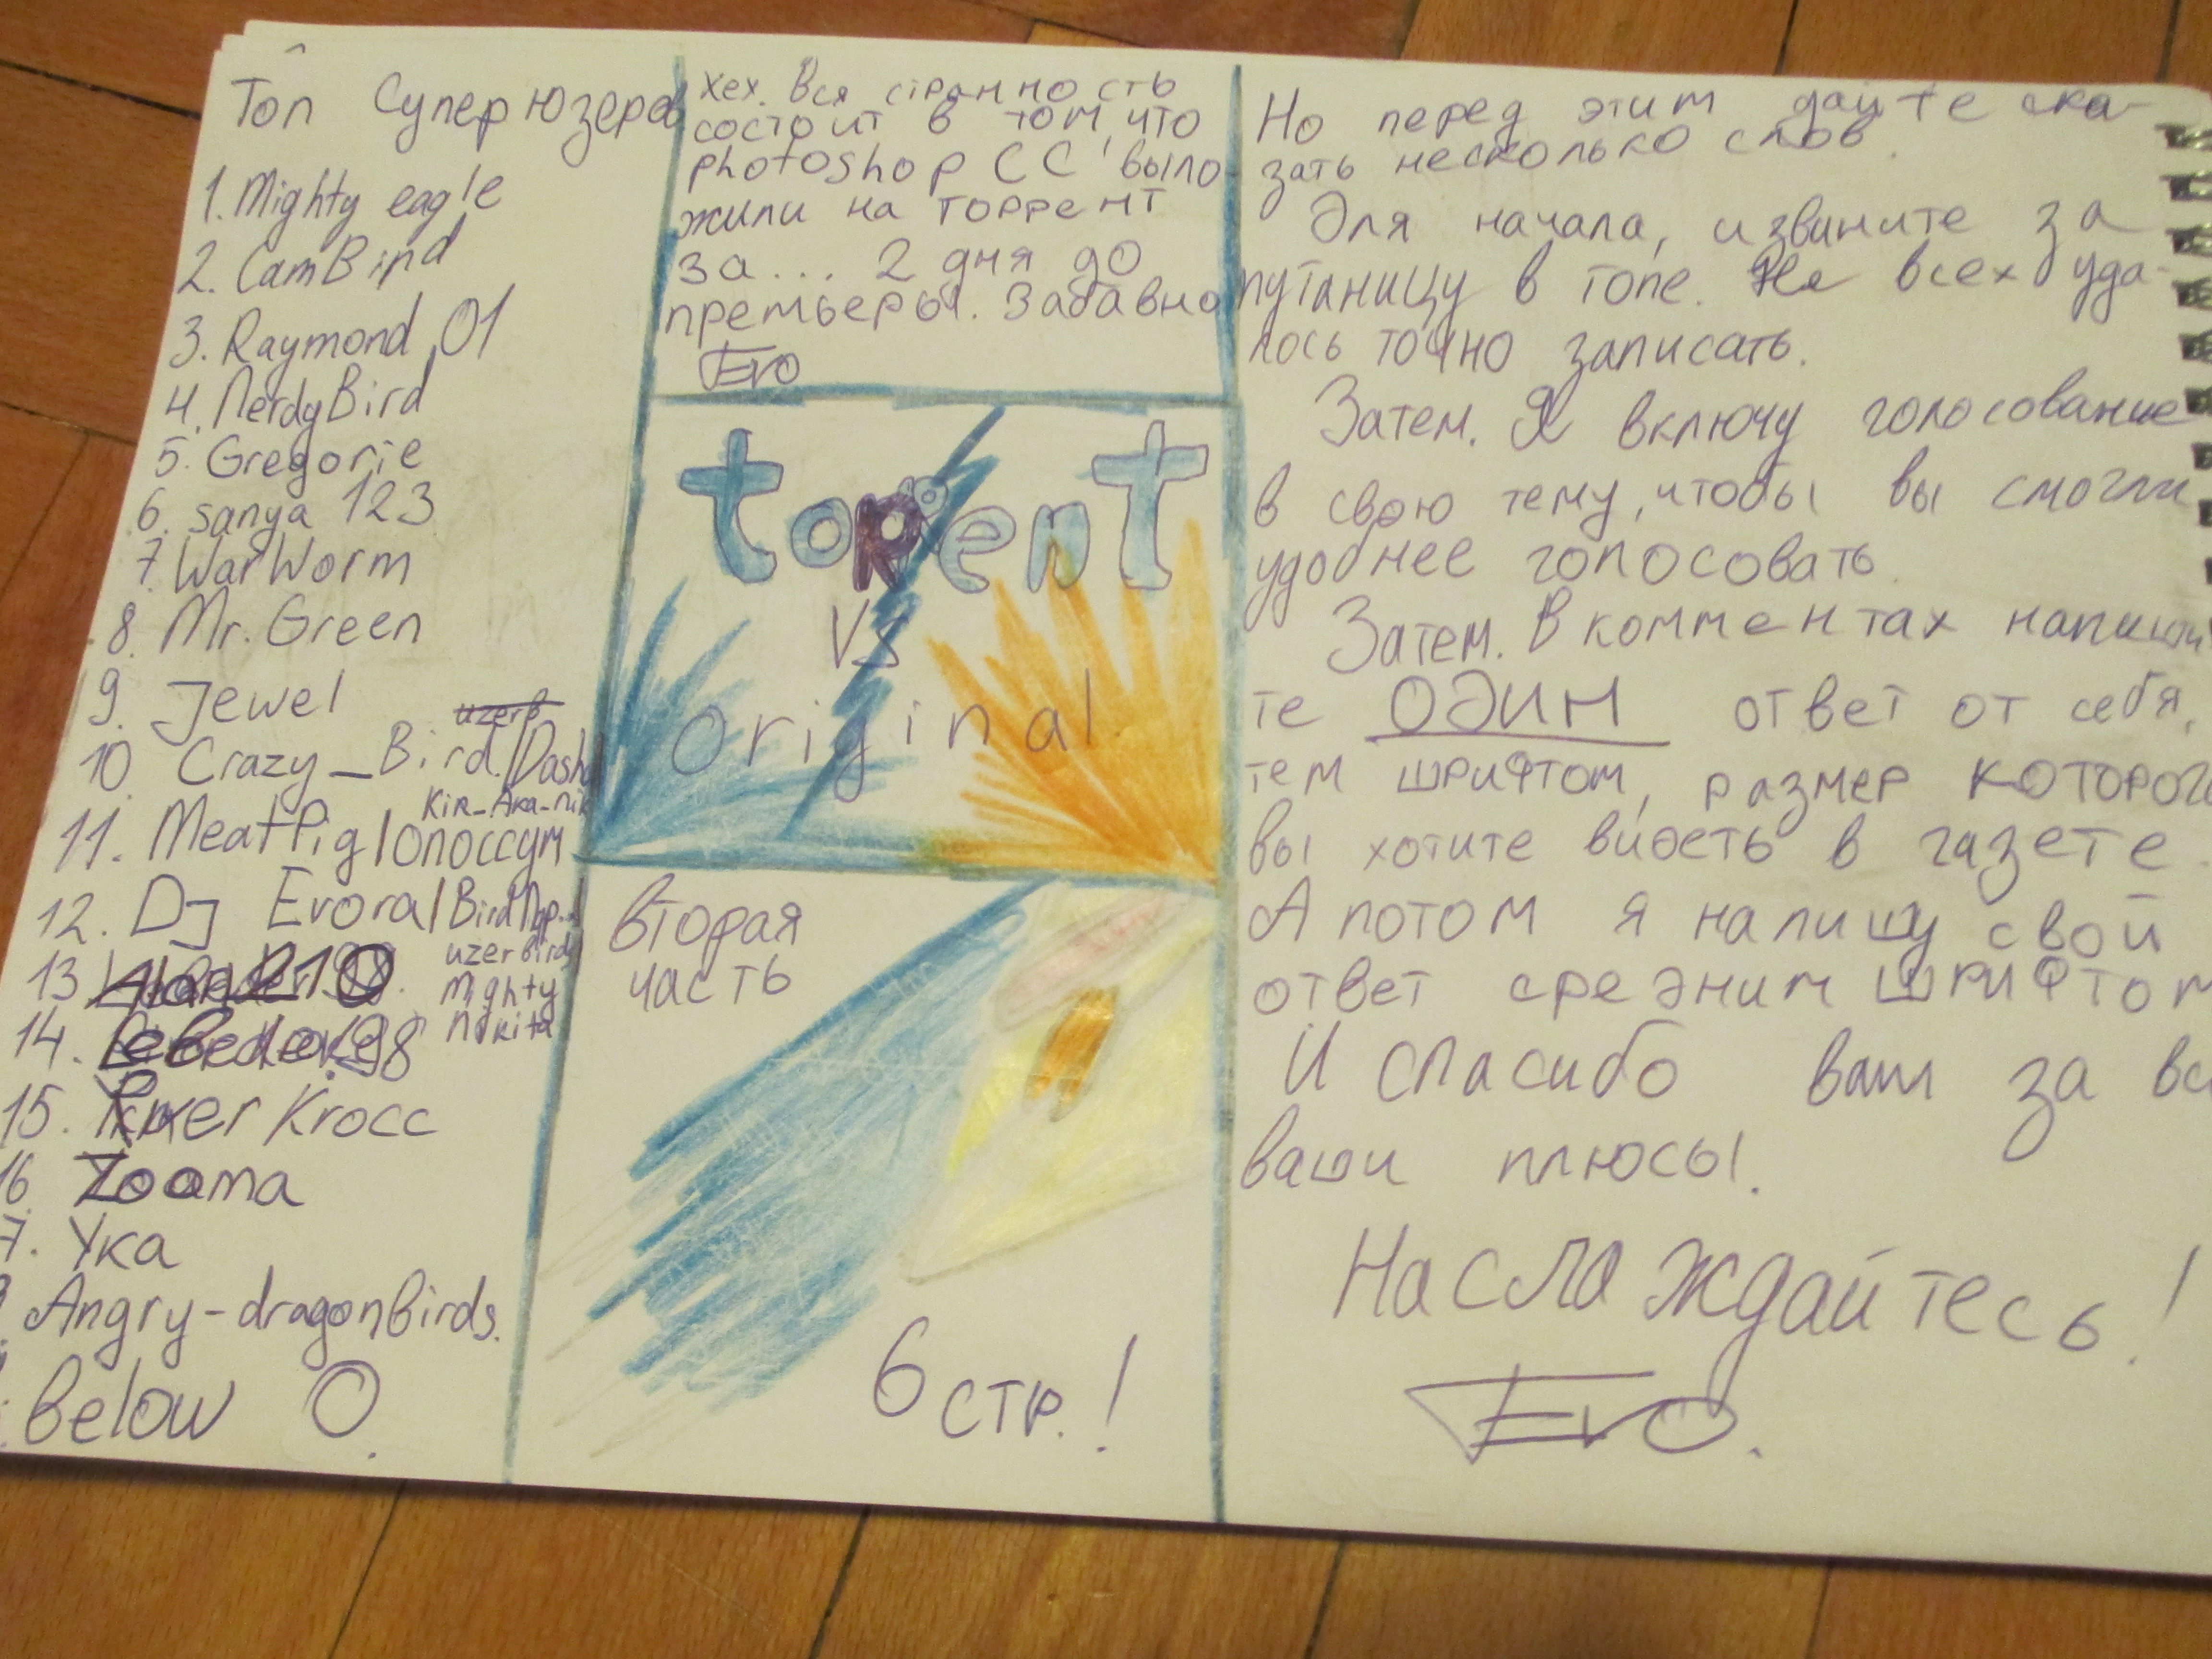 Топ Супер юзеров
1. Mighty eagle
2. CamBird
3. Raymond 01
4. NerdyBird
5. Gregorie
6. sanya 123
7. WarWorm
8. Mr. Green
9. Jewel
10. Crazy_Bird./Dasha
Kir_Aka_nik
11. MeatPig/Опоссум
12. Dj Evora/Bird
13
uzerbirds
Mighty
Nikita
14.
15. Krocc
16. Zooma
7. Ука
Angry-dragonBirds.
Below 0.
Хех. Вся странность
состоит в том, что
photoshop CC выло
жили на торрент
за... 2 дня до
премьеры. Забавно
Evo
torent
VS
original
вторая
часть
6 стр.!
Но перед этим дайте ска-
зать несколько слов.
Для начала, извините за
путаницу в топе. Не всех уда-
лось точно записать.
Затем. Я включу голосование
в свою тему, чтобы вы смогли
удобнее голосовать.
Затем. В комментах напиши
те ОДИН ответ от себя,
тем шрифтом, размер которого
вы хотите видеть в газете.
А потом я напишу свой
ответ средним шрифтом
И спасибо вам за вс
ваши плюсы.
Наслаждайтесь!
Evo.